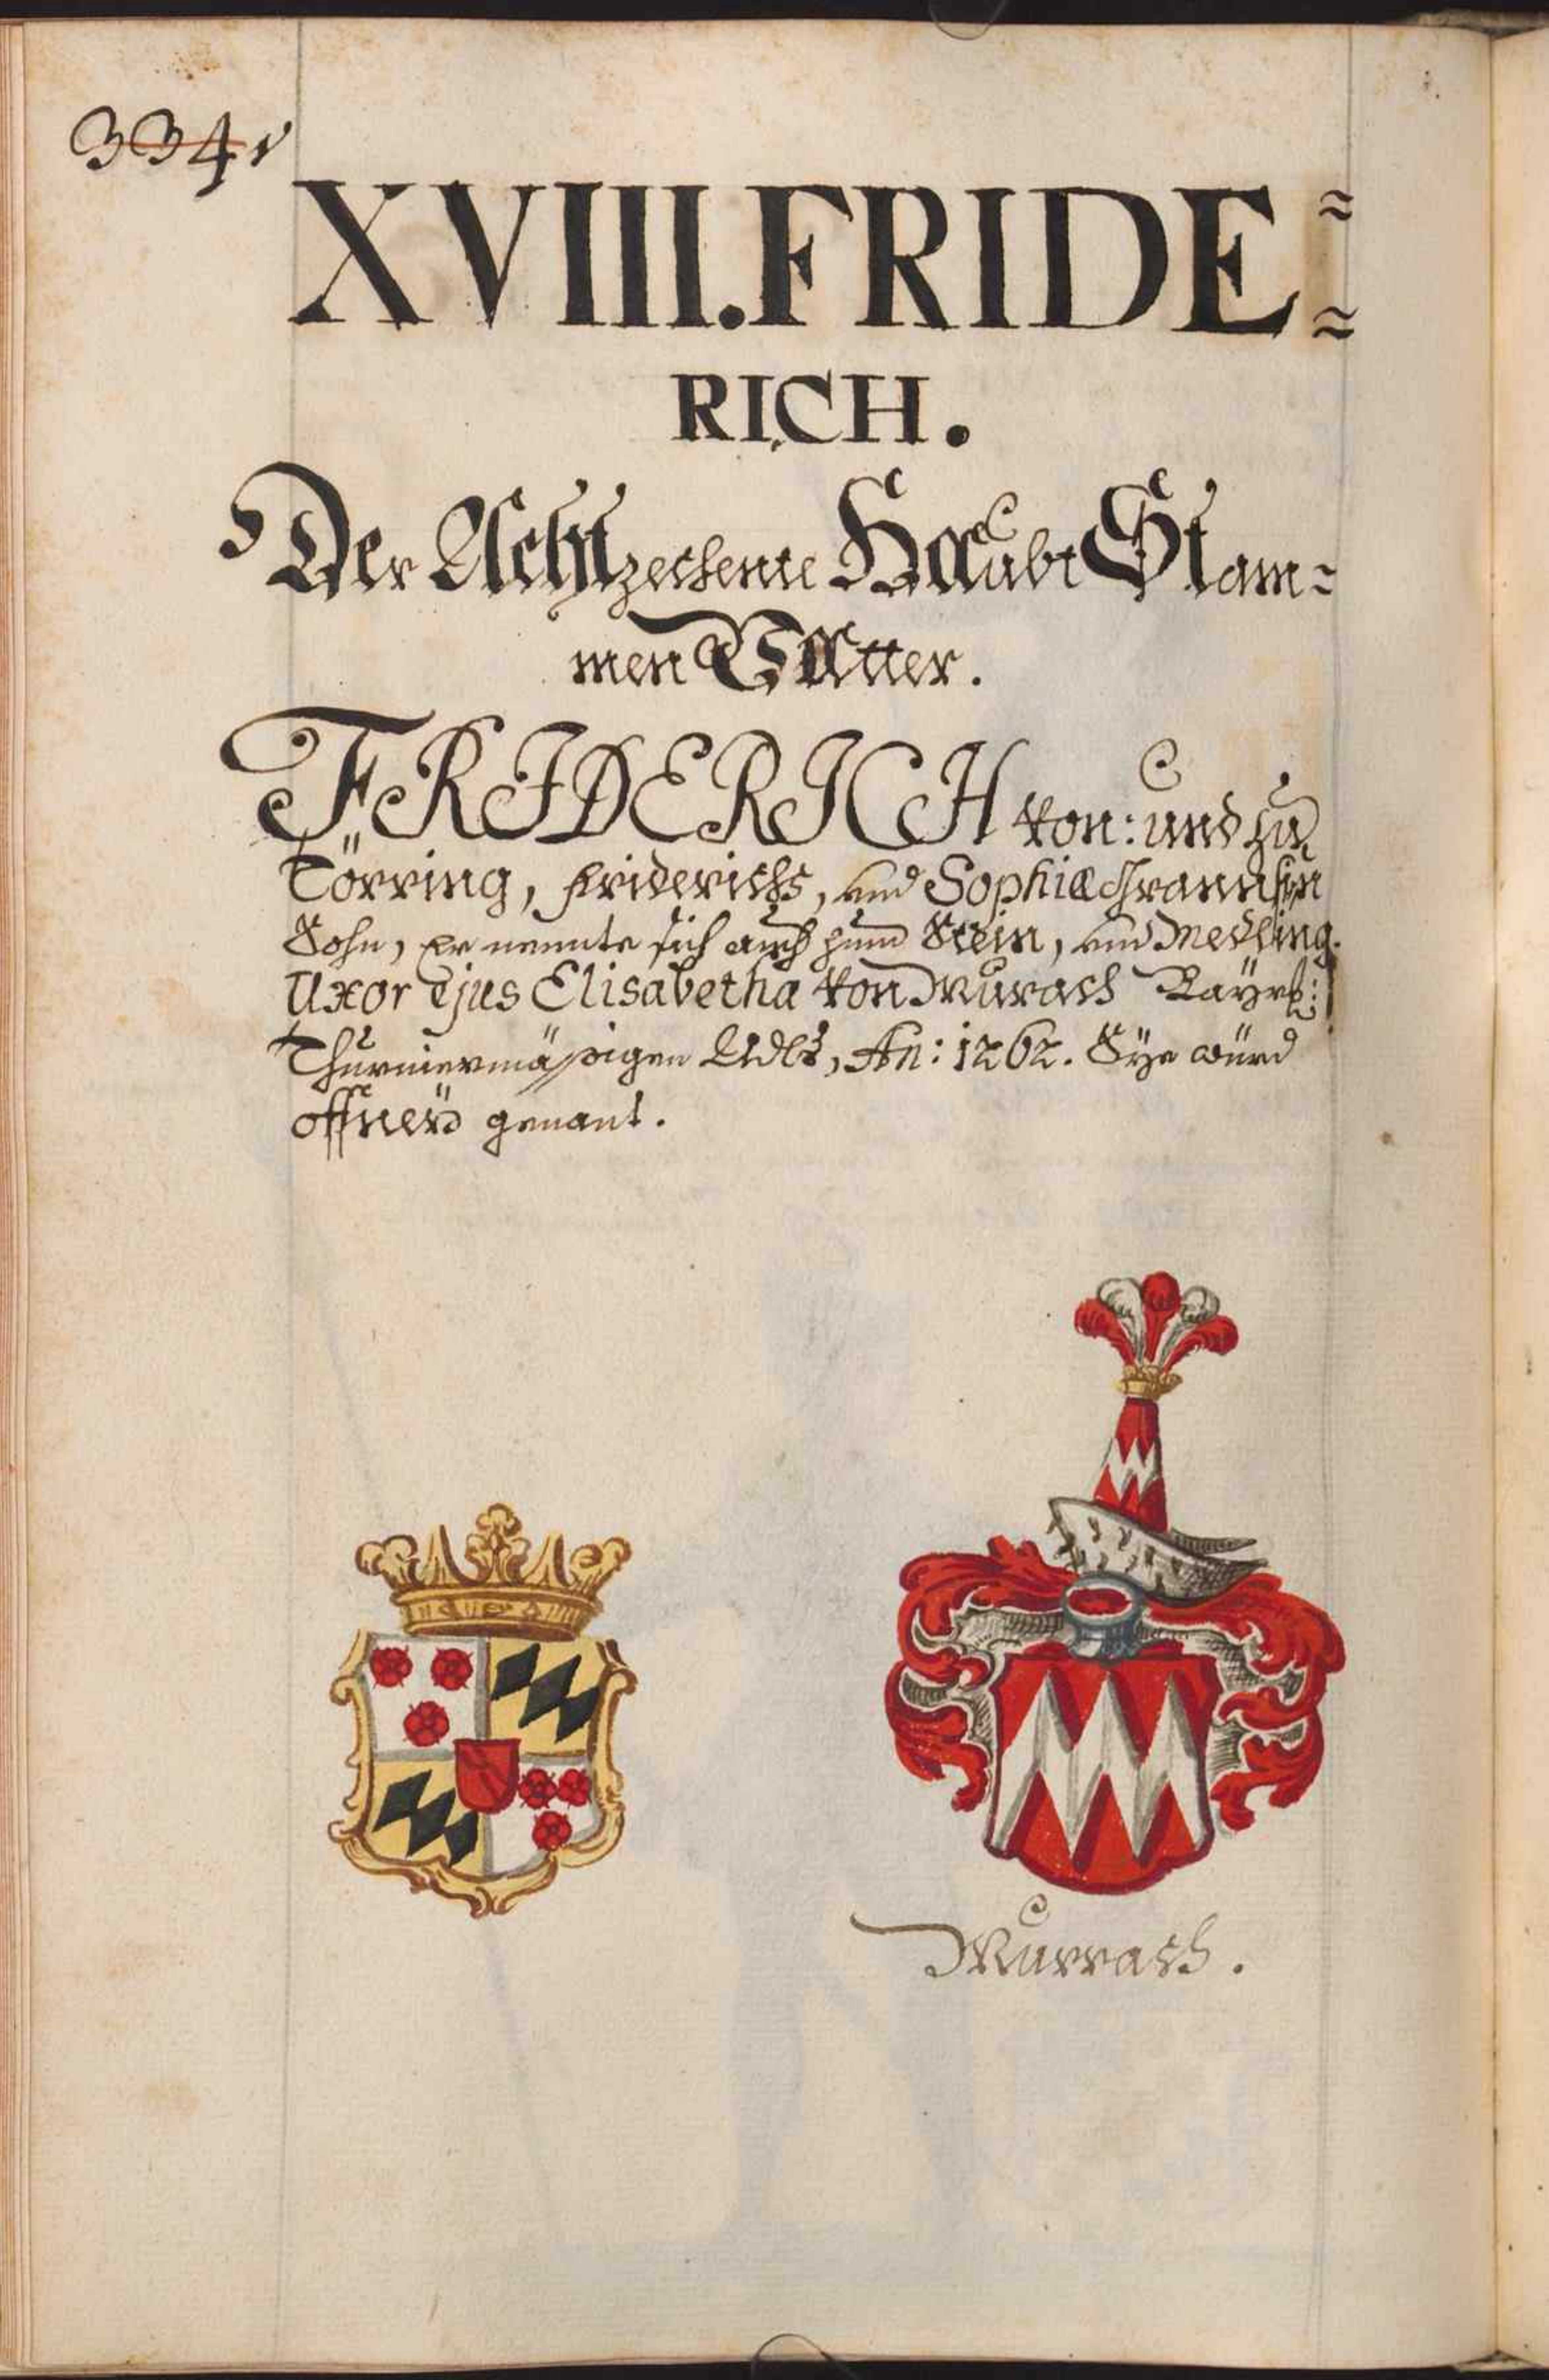 334v
XVIII. FRIDE=
RICH.
Der Achtzechente Haubt Stam=
men Vatter.
FRIDERICH von: und zu
Törring, Friderichs, und Sophiæ
Sohn, Er nennte sich auch zum Stein, und Medling.
Uxor Ejus Elisabetha von Murach Bayrl:
Thurniermässigen Adls, An: 1262. Sÿe würd
offneÿ genant.
Murrach.